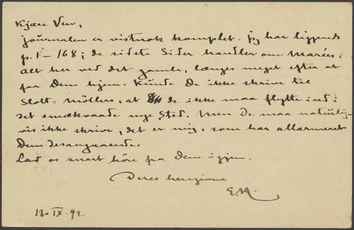 Kjære Ven,
journalen er vistnok komplet. jeg har liggende
p. 1–168; de sidste Sider handler om
alt her ved det gamle, længes meget efter at
faa Dem hjem. Kunde De ikke skrive til
Slott. Möller, at de ikke maa flytte ind i
det Sted. Men De maa naturlig-
vis ikke skrive, det er mig, som har allarmeret
Dem
Lad os snart höre fra Dem igjen.
Deres hengivne
18. IX. 92.